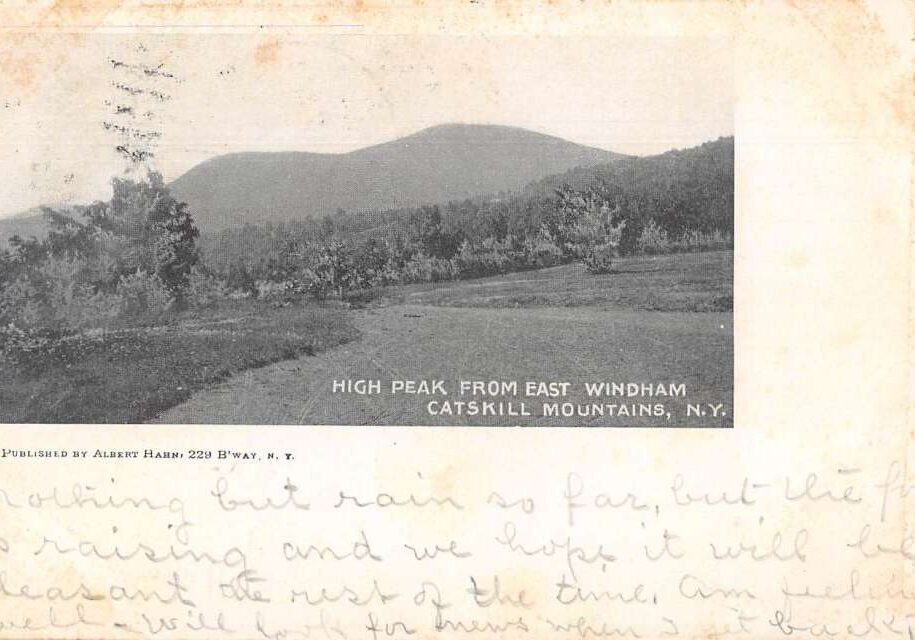 HIGH PEAK FROM EAST WINDHAM
CATSKILL MOUNTAINS, N.Y.
PUBLISHED BY ALBERT HAHN, 229 B'WAY, N. Y.
nothing but rain so far, but the
raising and we hope it will be
pleasant the rest of the time. Am feeling
well - Will look for news when I get back